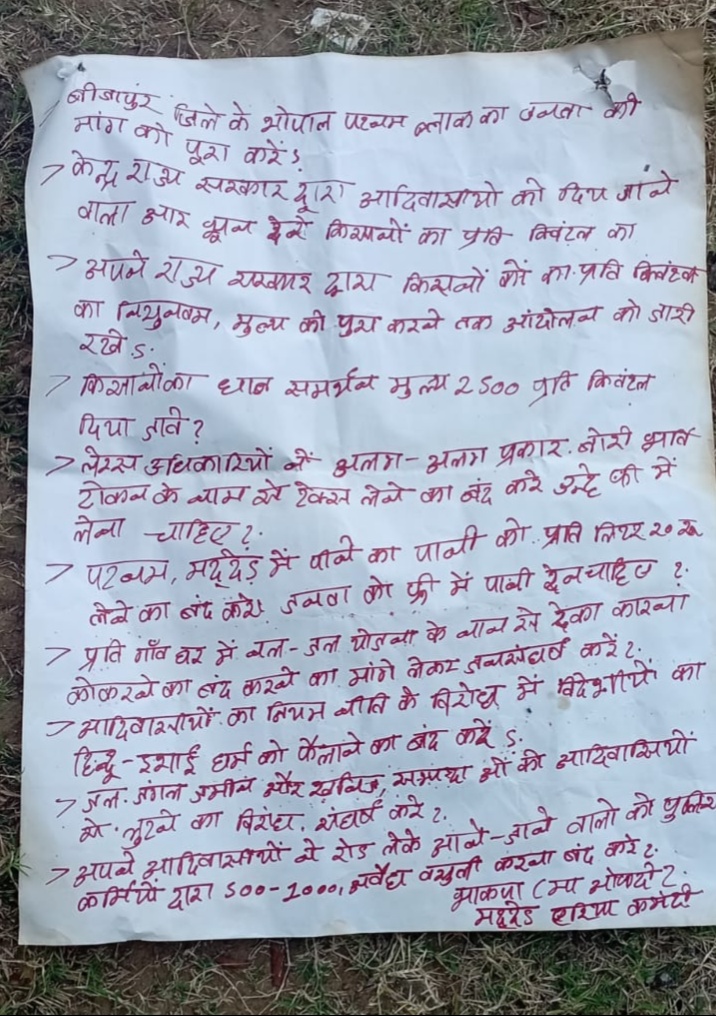 बीजापुर जिले के भोपाल पटनम ब्लाक का जनता की
मांग को पुरा करें ऽ
> केन्द्र राज्य सरकार द्वारा आदिवासीयो को दिये जाने
वाला आर किसानों का प्रति क्विंटल का
> अपने राज्य सरकार द्वारा किसानों को का प्रति क्विंटल
का नियुनतम, मुल्य को पुरा करने तक आंदोलन को जारी
रखे ऽ.
> किसानोंका धान समर्थन मुल्य 2500 प्रति किवंटल
दिया जावे ?
> अधिकारियों ने अलग-अलग प्रकार. बोरी
टोकन के नाम से टेक्स लेने का बंद करे उन्हे फ्री में
लेना चाहिए ?.
> पटनम, मद्देड़ में पीने का पानी को प्रति लिटर 20 रू
लेने का बंद करें जनता को फ्री में पानी देनचाहिए ?.
> प्रति गाँव घर में नल-जल योजना के नाम से ठेका कारना
कोकरने का बंद करने का मांगे लेकर जनसंघर्ष करें ?.
> आदिवासीयों का नियम नीति के बिरोध में विदेशीयों का
हिन्दू-इसाई धर्म को फैलाने का बंद करें ऽ.
> जल. जंगल जमीन और खनिज, सम्पदा ओं को आदिवासियों
से. लुटने का बिरोध. संघर्ष करे ?.
> अपने आदिवासीयों से रोड लेके आने-जाने वालो को पुलिस
कर्मियों द्वारा 500-1000, अवैध वसुली करना बंद करे ?.
भाकपा (मा
मद्देड एरिया कमेटी